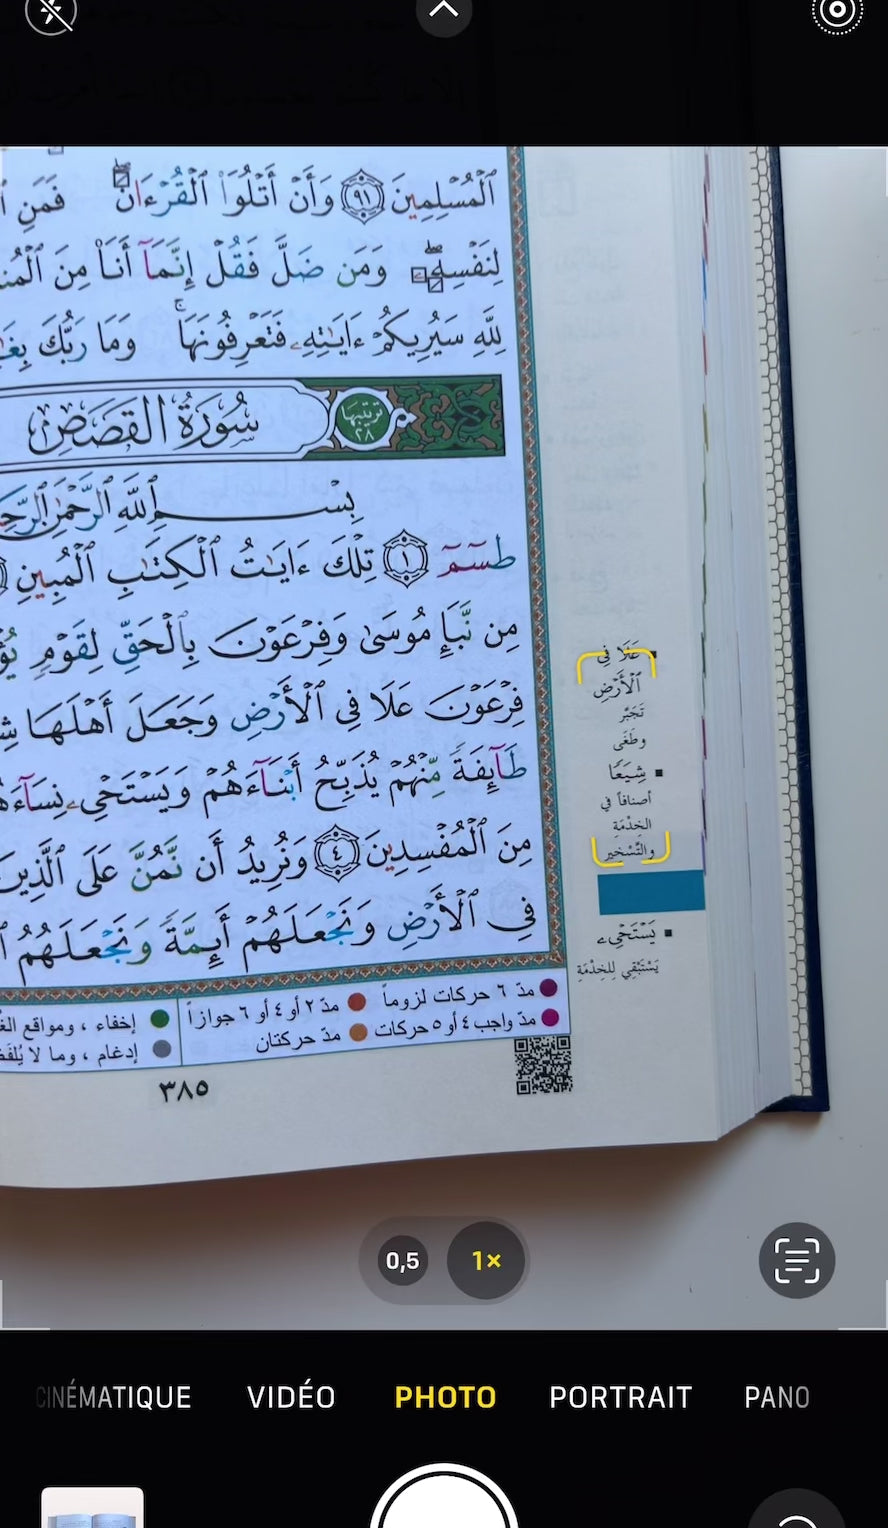 ٱلْمُسْلِمِينَ ٩١ وَأَنْ أَتْلُوَا۟ ٱلْقُرْءَانَ فَمَنِ
لِنَفْسِهِۦ وَمَن ضَلَّ فَقُلْ إِنَّمَآ أَنَا۠ مِنَ
لِلَّهِ سَيُرِيكُمْ ءَايَـٰتِهِۦ فَتَعْرِفُونَهَا ۚ وَمَا رَبُّكَ
ترتيبها ٢٨
سُورَةُ القَصَصِ
بِسْمِ ٱللَّهِ ٱلرَّحْمَـٰنِ
طسٓمٓ ١ تِلْكَ ءَايَـٰتُ ٱلْكِتَـٰبِ ٱلْمُبِينِ
مِن نَّبَإِ مُوسَىٰ وَفِرْعَوْنَ بِٱلْحَقِّ لِقَوْمٍ
فِرْعَوْنَ عَلَا فِى ٱلْأَرْضِ وَجَعَلَ أَهْلَهَا
طَآئِفَةً مِّنْهُمْ يُذَبِّحُ أَبْنَآءَهُمْ وَيَسْتَحْىِۦ
مِنَ ٱلْمُفْسِدِينَ ٤ وَنُرِيدُ أَن نَّمُنَّ عَلَى ٱلَّذِينَ
فِى ٱلْأَرْضِ وَنَجْعَلَهُمْ أَئِمَّةً وَنَجْعَلَهُمُ
■ عَلَا فِى
ٱلْأَرْضِ
تَجَبَّر
وطَغَى
■ شِيَعًا
أصنافاً في
الخِدْمَةِ
والتَّسْخِيرِ
■ يَسْتَحْىِۦ
يَسْتَبْقِي لِلخِدْمَةِ
مدّ ٦ حركات لزوماً مدّ ٢ أو ٤ أو ٦ جوازاً
مدّ واجب ٤ أو ٥ حركات مدّ حركتان
إخفاء ، ومواقع
إدغام ، وما لا
٣٨٥
0,5 1×
CINÉMATIQUE VIDÉO PHOTO PORTRAIT PANO